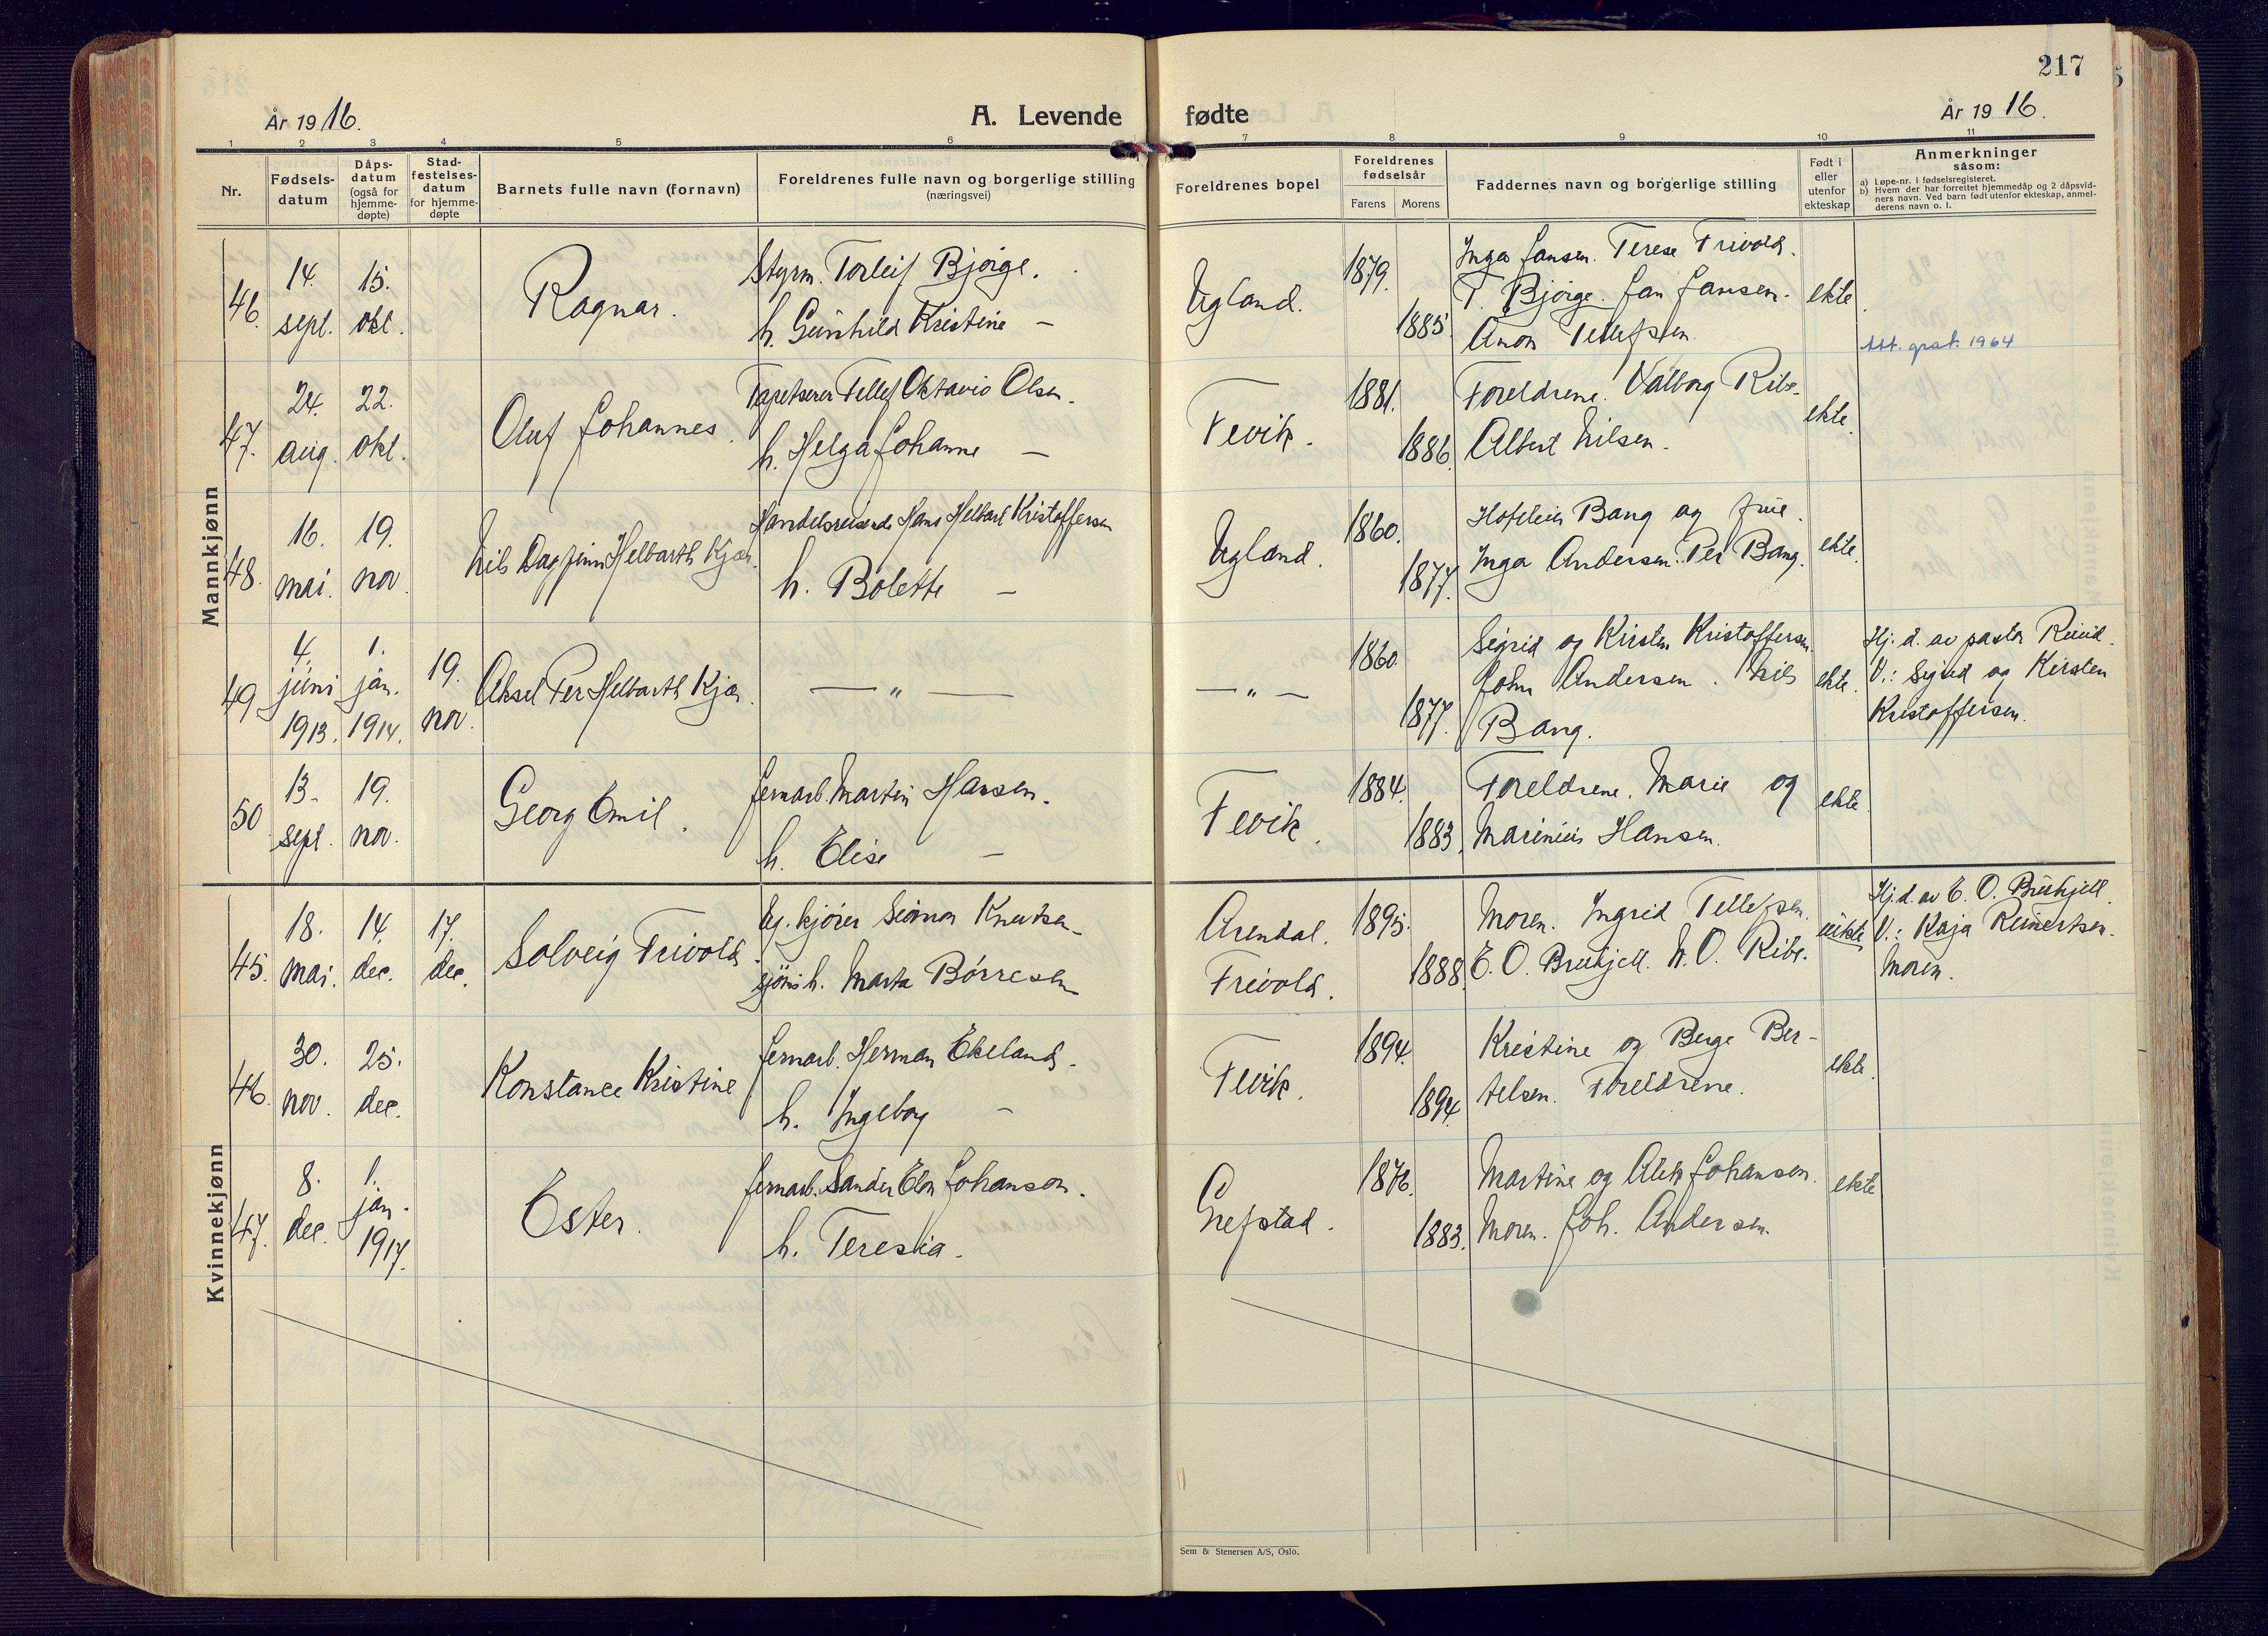 217
År 1916.
A. Levende fødte
År 1916.
1 2 3 4 5 6 7 8 9 10 11
Nr.
Fødsels-
datum
Dåps-
datum
(også for
hjemme-
døpte)
Stad-
festelses-
datum
for hjemme-
døpte
Barnets fulle navn (fornavn)
Foreldrenes fulle navn og borgerlige stilling
(næringsvei)
Foreldrenes bopel
Foreldrenes
fødselsår
Farens Morens
Faddernes navn og borgerlige stilling
Født i
eller
utenfor
ekteskap
Anmerkninger
såsom:
a) Løpe-nr. i fødselsregisteret.
b) Hvem der har forrettet hjemmedåp og 2 dåpsvid-
ners navn. Ved barn født utenfor ekteskap, anmel-
derens navn o. l.
Mannkjønn
46.
14.
sept.
15.
okt.
Ragnar.
Styrm. Torleif Bjørge.
h. Gunhild Kristine —
Ugland.
1879.
1885
Inga Jansen. Terese Frivold.
T. Bjørge. Jan Jansen.
Anon Tellefsen.
ekte.
Att. grat. 1964
47.
24.
aug.
22.
okt.
Oluf Johannes.
Tapetserer Tellef Oktavio Olsen.
h. Helga Johanne —
Fevik.
1881.
1886.
Foreldrene. Valborg Ribe.
Albert Nilsen.
ekte.
48.
16.
mai.
19.
nov
Nils Dagfinn Helbarth Kjær.
Handelsreisende Hans Helbart Kristoffersen
h. Bolette —
Ugland.
1860.
1877.
Bang og frue.
Inga Andersen. Per Bang.
ekte.
49
4.
juni
1913.
1.
jan.
1914.
19.
nov.
Aksel Per Helbarth Kjær.
— " —
— " —
1860.
1877.
Sigrid og Kirsten Kristoffersen.
John Andersen. Nils
Bang.
ekte.
Hj. d. av pastor Ruud.
V.: Sigrid og Kirsten
Kristoffersen.
50
13.
sept.
19.
nov.
Georg Emil.
Jernarb. Martin Hansen.
h. Elise —
Fevik.
1884.
1883.
Foreldrene. Marie og
Marinius Hansen.
ekte.
Kvinnekjønn
45.
18.
mai.
14.
dec.
17.
dec.
Solveig Frivold.
kjører Simon Knudsen
h. Marta Børresen
Arendal.
Frivold.
1895.
1888.
Moren. Ingrid Tellefsen.
E. O. Bruhjell. N. O. Ribe.
uekte
Hj. d. av E. O. Bruhjell.
V.: Kaja Reinertsen.
Moren.
46.
30.
nov.
25.
dec.
Konstance Kristine
Jernarb. Herman Ekeland.
h. Ingeborg —
Fevik.
1894.
1894.
Kristine og Berge Ber-
telsen. Foreldrene.
ekte.
47.
8.
dec.
1.
jan.
1917.
Ester.
Jernarb. Sander Elon Johanson.
h. Teresia.
Grefstad.
1876.
1883.
Martine og Alek Johansen.
Moren. Joh. Andersen.
ekte
Sem & Stenersen A/S, Oslo.